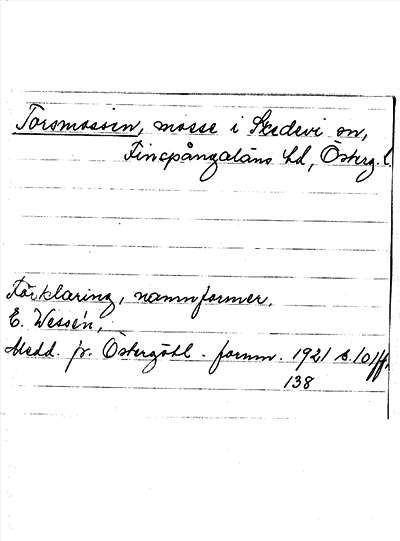 Torsmossen, mosse i Skedevi sn,
Finspångaläns hd, Österg. l.
Förklaring, namnformer.
E. Wessén,
Medd. fr. Östergötl. fornm. 1921 s. 10 ff,
138